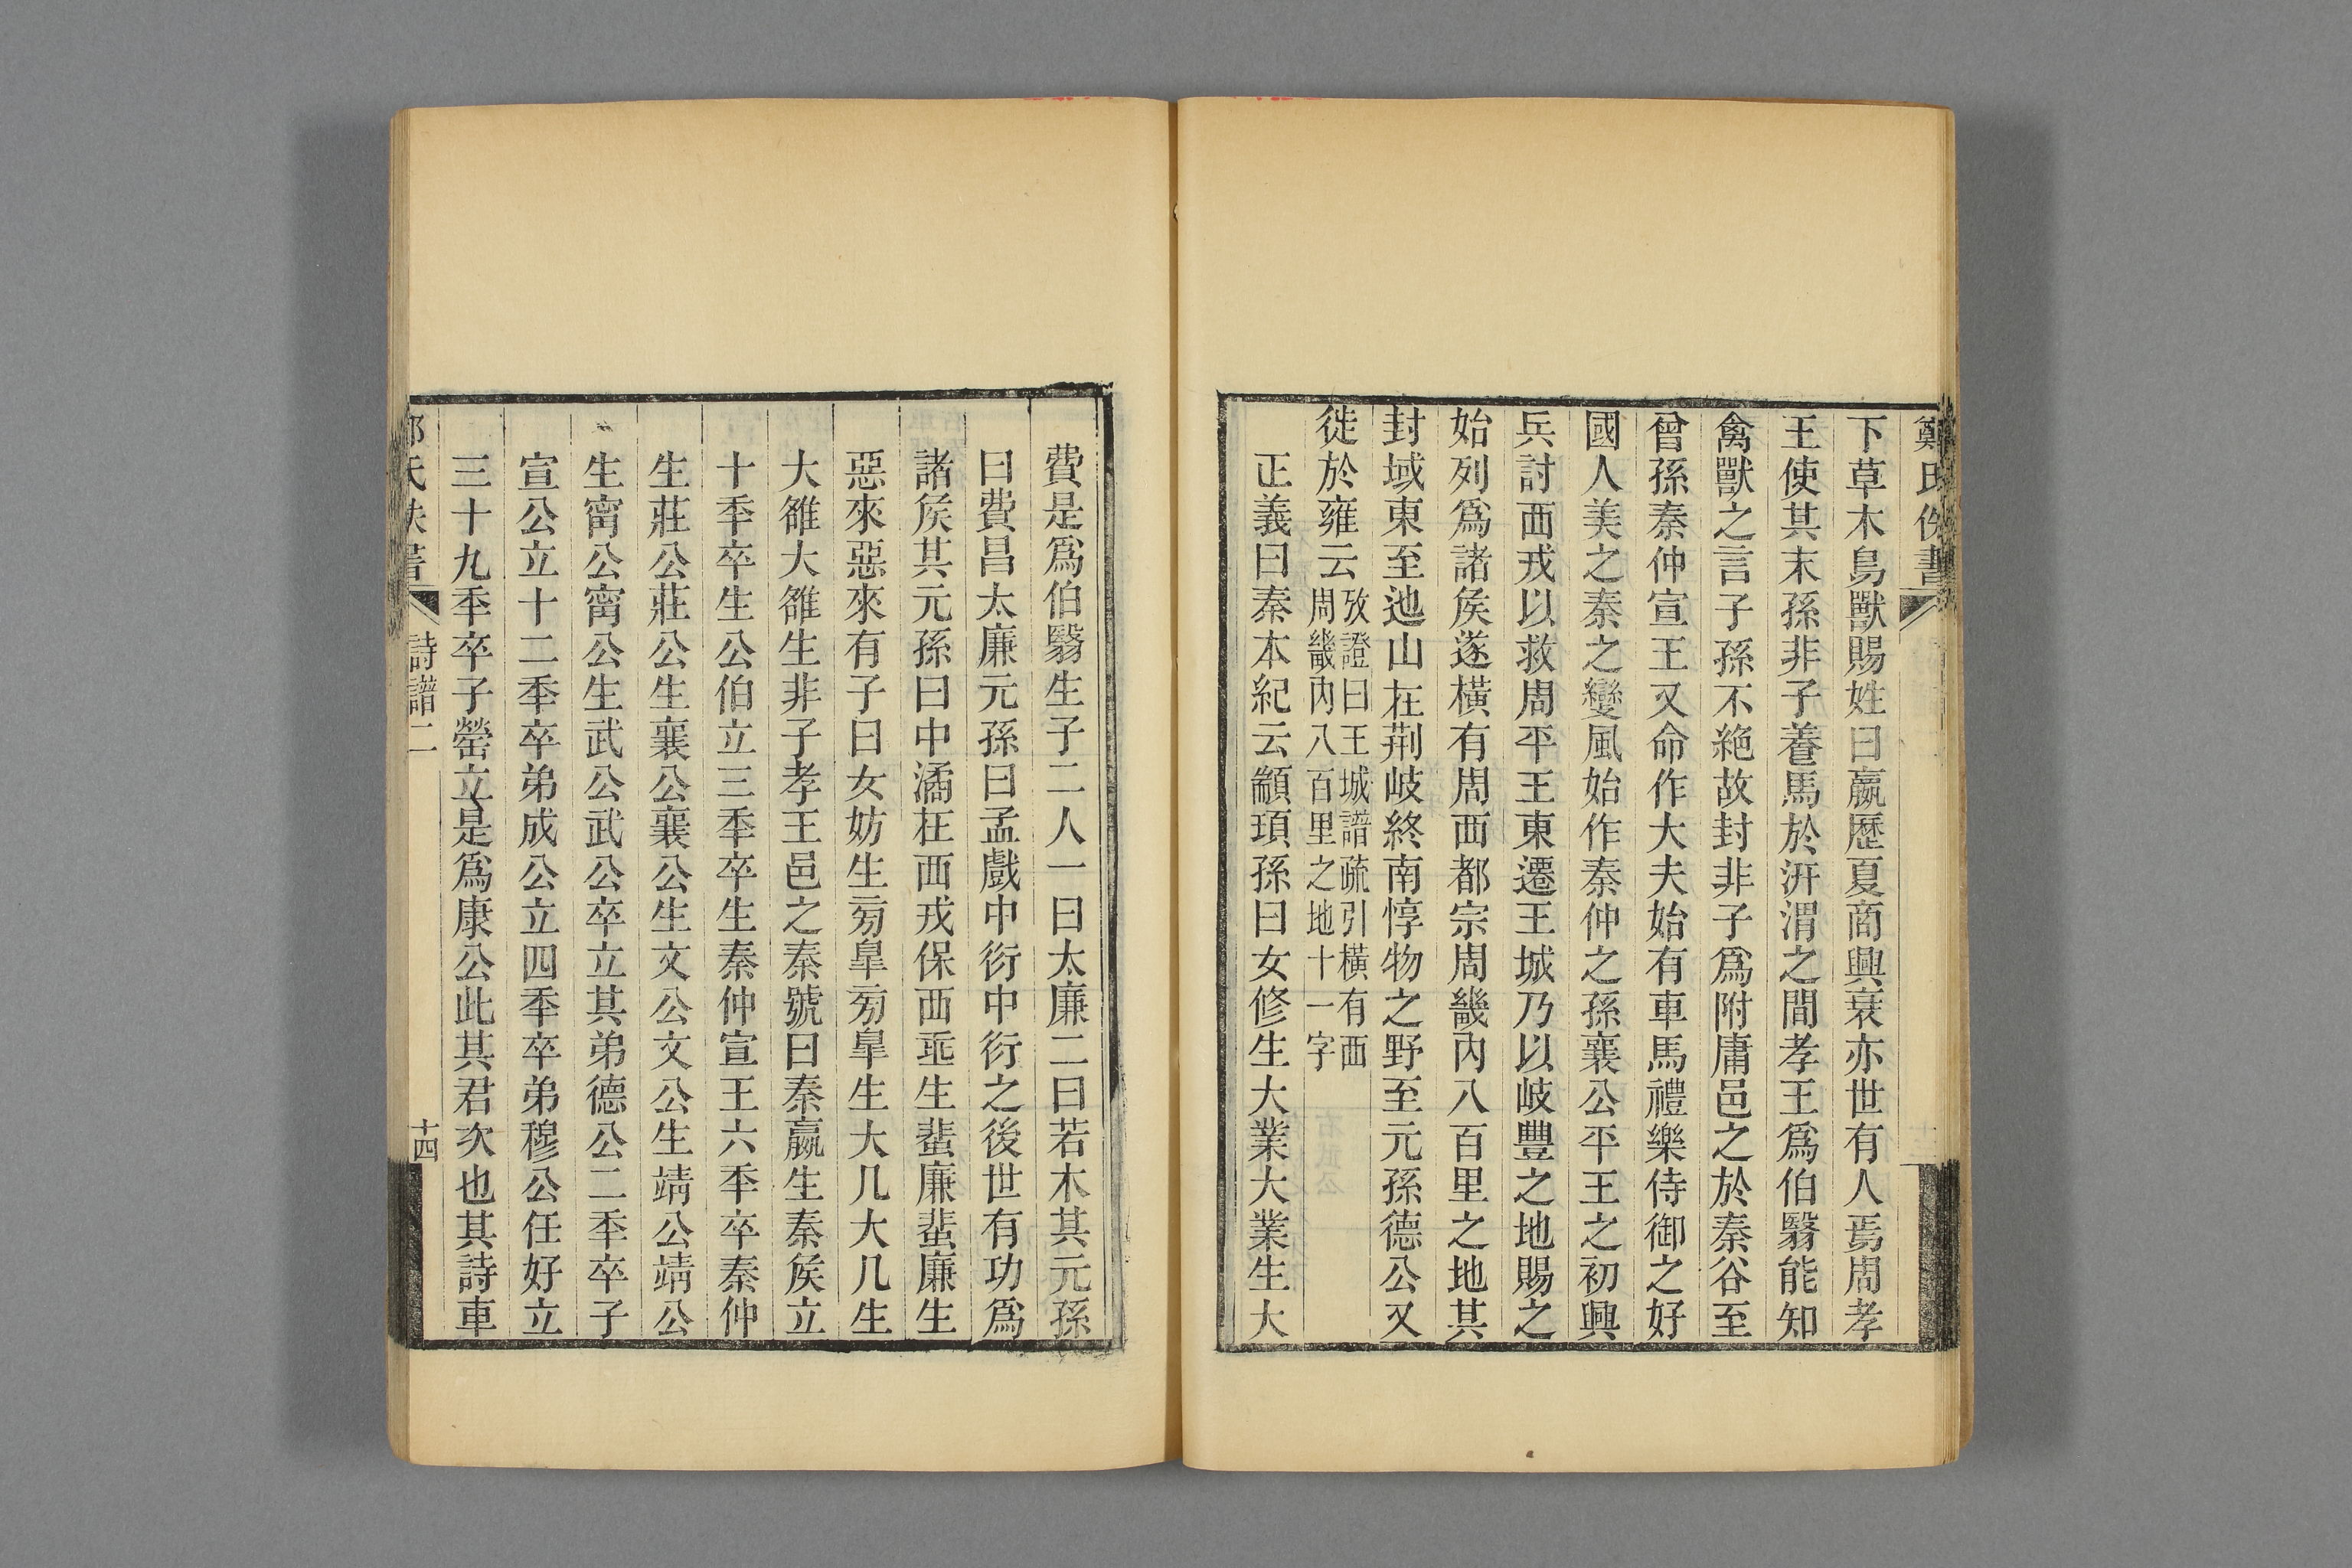 鄭氏佚書
下草木鳥獸賜姓曰嬴歷夏商興衰亦世有人焉周孝
王使其末孫非子養馬於汧渭之間孝王爲伯翳能知
禽獸之言子孫不絶故封非子爲附庸邑之於秦谷至
曾孫秦仲宣王又命作大夫始有車馬禮樂侍御之好
國人美之秦之變風始作秦仲之孫襄公平王之初興
兵討西戎以救周平王東遷王城乃以岐豐之地賜之
始列爲諸矦遂橫有周西都宗周畿内八百里之地其
封域東至迆山在荆岐終南惇物之野至元孫德公又
徙於雍云攷證曰王城譜疏引橫有西
周畿内八百里之地十一字
正義曰秦本紀云顓頊孫曰女修生大業大業生大
費是爲伯翳生子二人一曰太廉二曰若木其元孫
曰費昌太廉元孫曰孟戲中衍中衍之後世有功爲
諸矦其元孫曰中潏在西戎保西垂生蜚廉蜚廉生
惡來惡來有子曰女妨生㫄臯㫄臯生大几大几生
大雒大雒生非子孝王邑之秦號曰秦嬴生秦矦立
十秊卒生公伯立三秊卒生秦仲宣王六秊卒秦仲
生莊公莊公生襄公襄公生文公文公生靖公靖公
生甯公甯公生武公武公卒立其弟德公二秊卒子
宣公立十二秊卒弟成公立四秊卒弟穆公任好立
三十九秊卒子罃立是爲康公此其君次也其詩車
詩譜二
十四